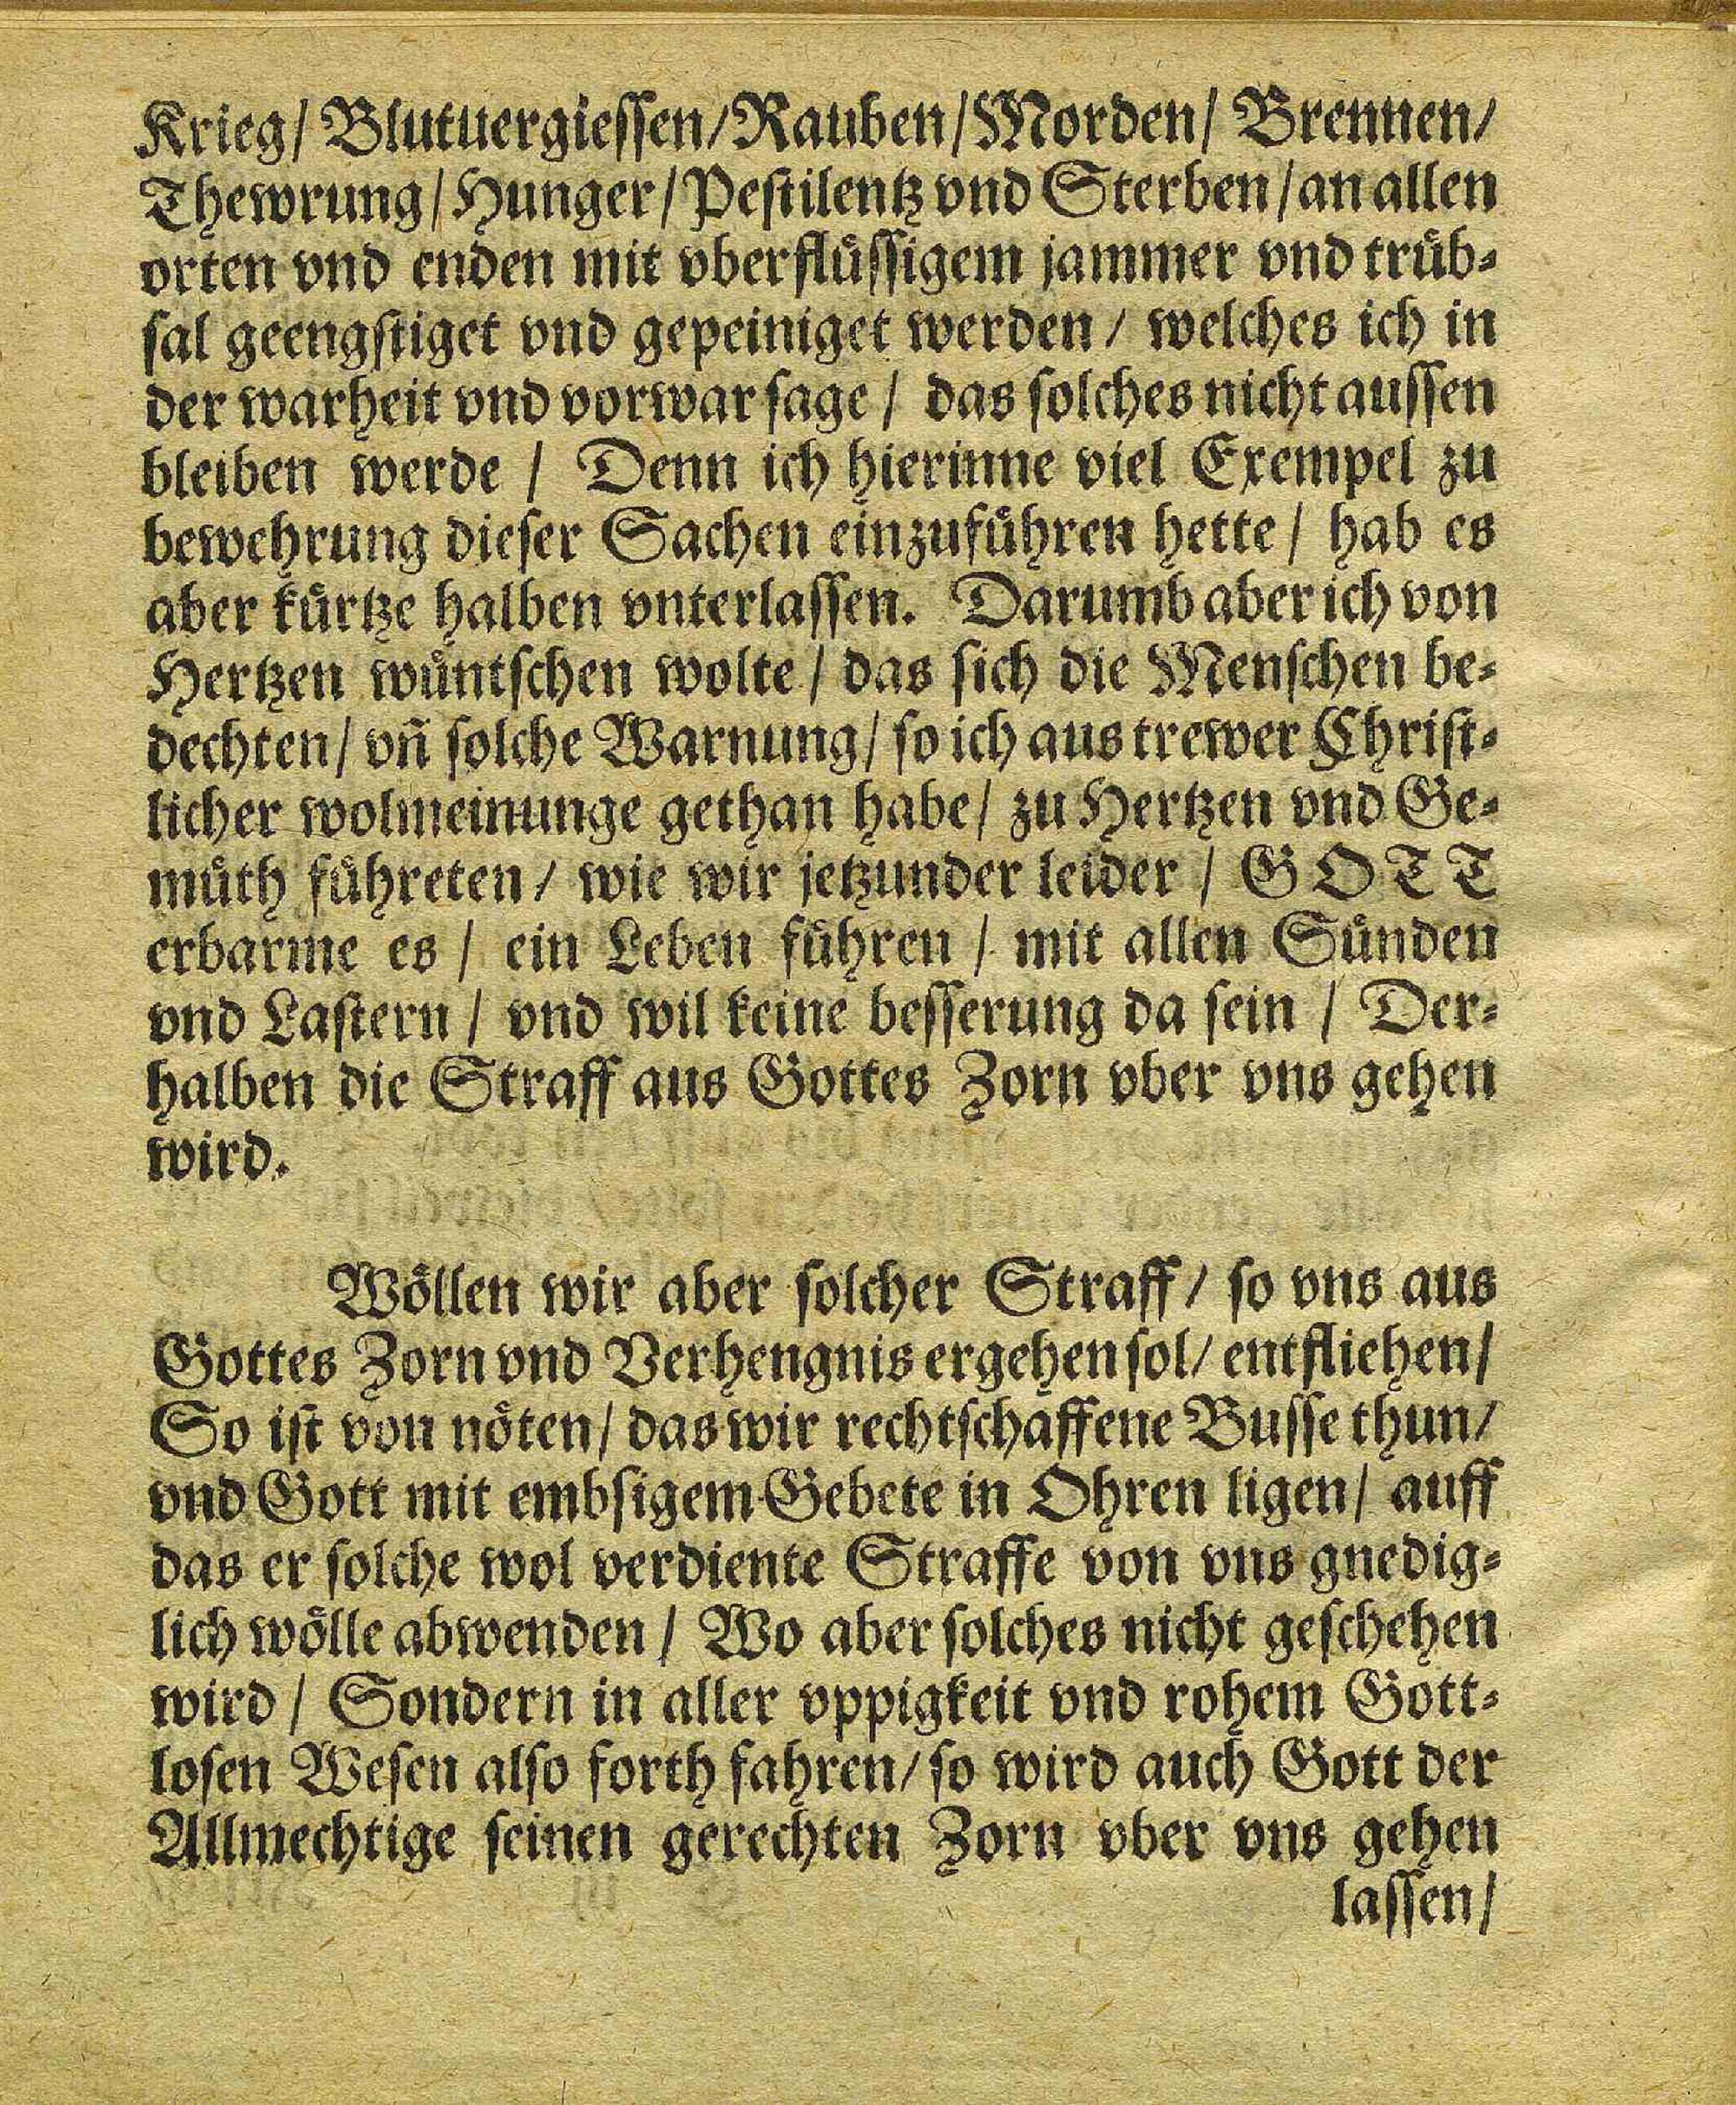 Krieg/ Blutuergieſſen/ Rauben/ Morden/ Brennen/
Thewrung/ Hunger/ Peſtilentz vnd Sterben/ an allen
orten vnd enden mit vberfluͤſſigem jammer vnd truͤb⸗
ſal geengſtiget vnd gepeiniget werden/ welches ich in
der warheit vnd vorwar ſage/ das ſolches nicht auſſen
bleiben werde/ Denn ich hierinne viel Exempel zu
bewehrung dieſer Sachen einzufuͤhren hette/ hab es
aber kuͤrtze halben vnterlaſſen. Darumb aber ich von
Hertzen wuͤntſchen wolte/ das ſich die Menſchen be⸗
dechten/ vñ ſolche Warnung/ ſo ich aus trewer Chriſt⸗
licher wolmeinunge gethan habe/ zu Hertzen vnd Ge⸗
muͤth fuͤhreten/ wie wir jetzunder leider/ GOTT
erbarme es/ ein Leben fuͤhren/ mit allen Suͤnden
vnd Laſtern/ vnd wil keine beſſerung da ſein/ Der⸗
halben die Straff aus Gottes Zorn vber vns gehen
wird.
Woͤllen wir aber ſolcher Straff/ ſo vns aus
Gottes Zorn vnd Verhengnis ergehen ſol/ entfliehen/
So iſt von noͤten/ das wir rechtſchaffene Buſſe thun/
vnd Gott mit embſigem Gebete in Ohren ligen/ auff
das er ſolche wol verdiente Straffe von vns gnedig⸗
lich woͤlle abwenden/ Wo aber ſolches nicht geſchehen
wird/ Sondern in aller vppigkeit vnd rohem Gott⸗
loſen Weſen alſo forth fahren/ ſo wird auch Gott der
Allmechtige ſeinen gerechten Zorn vber vns gehen
laſſen/